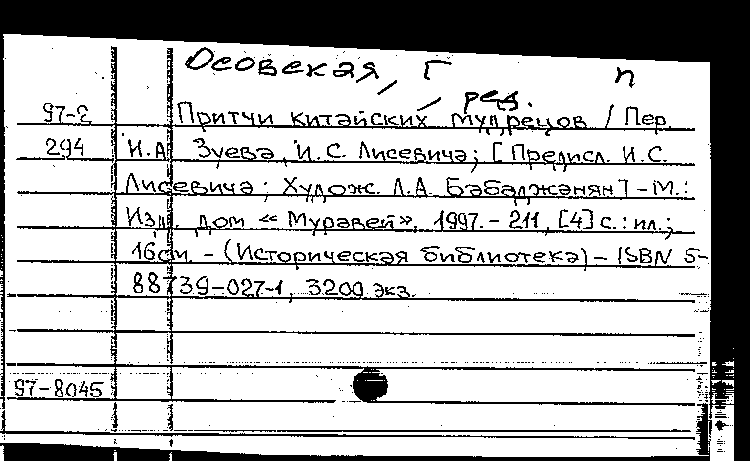 Осовская, Г п
ред.
97-2 Притчи китайских мудрецов / Пер.
294 И.А Зуева, И.С. Лисевича; [Предисл. И.С.
Лисевича; Худож. Л.А. Бабаджанян] - М.:
Изд. дом «Муравей», 1997. - 211, [4] с.: ил.;
16см. - (Историческая библиотека) - ISBN 5-
88739-027-1, 3200 экз.
97-8045